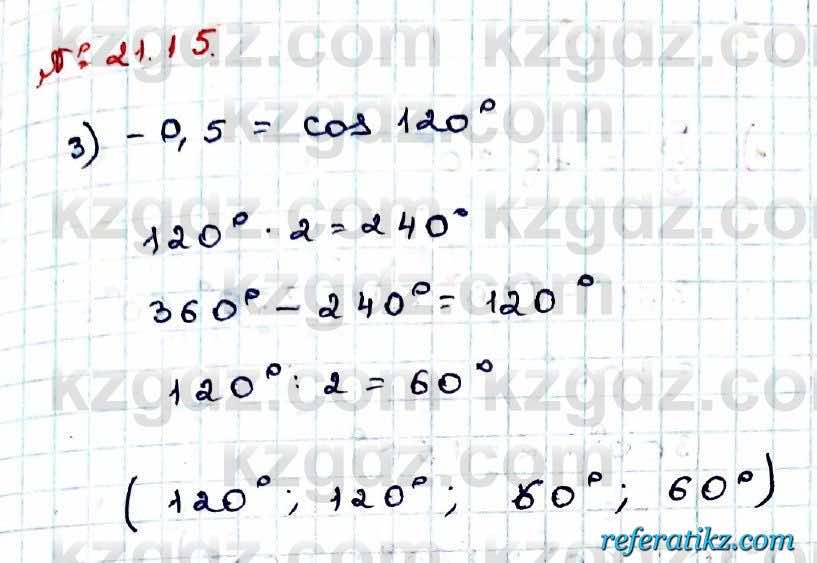 № 21.15.
3) - 0,5 = cos 120°
120° · 2 = 240°
360° - 240° = 120°
120° : 2 = 60°
(120°; 120°; 60°; 60°)
kzgdz.com
referatikz.com